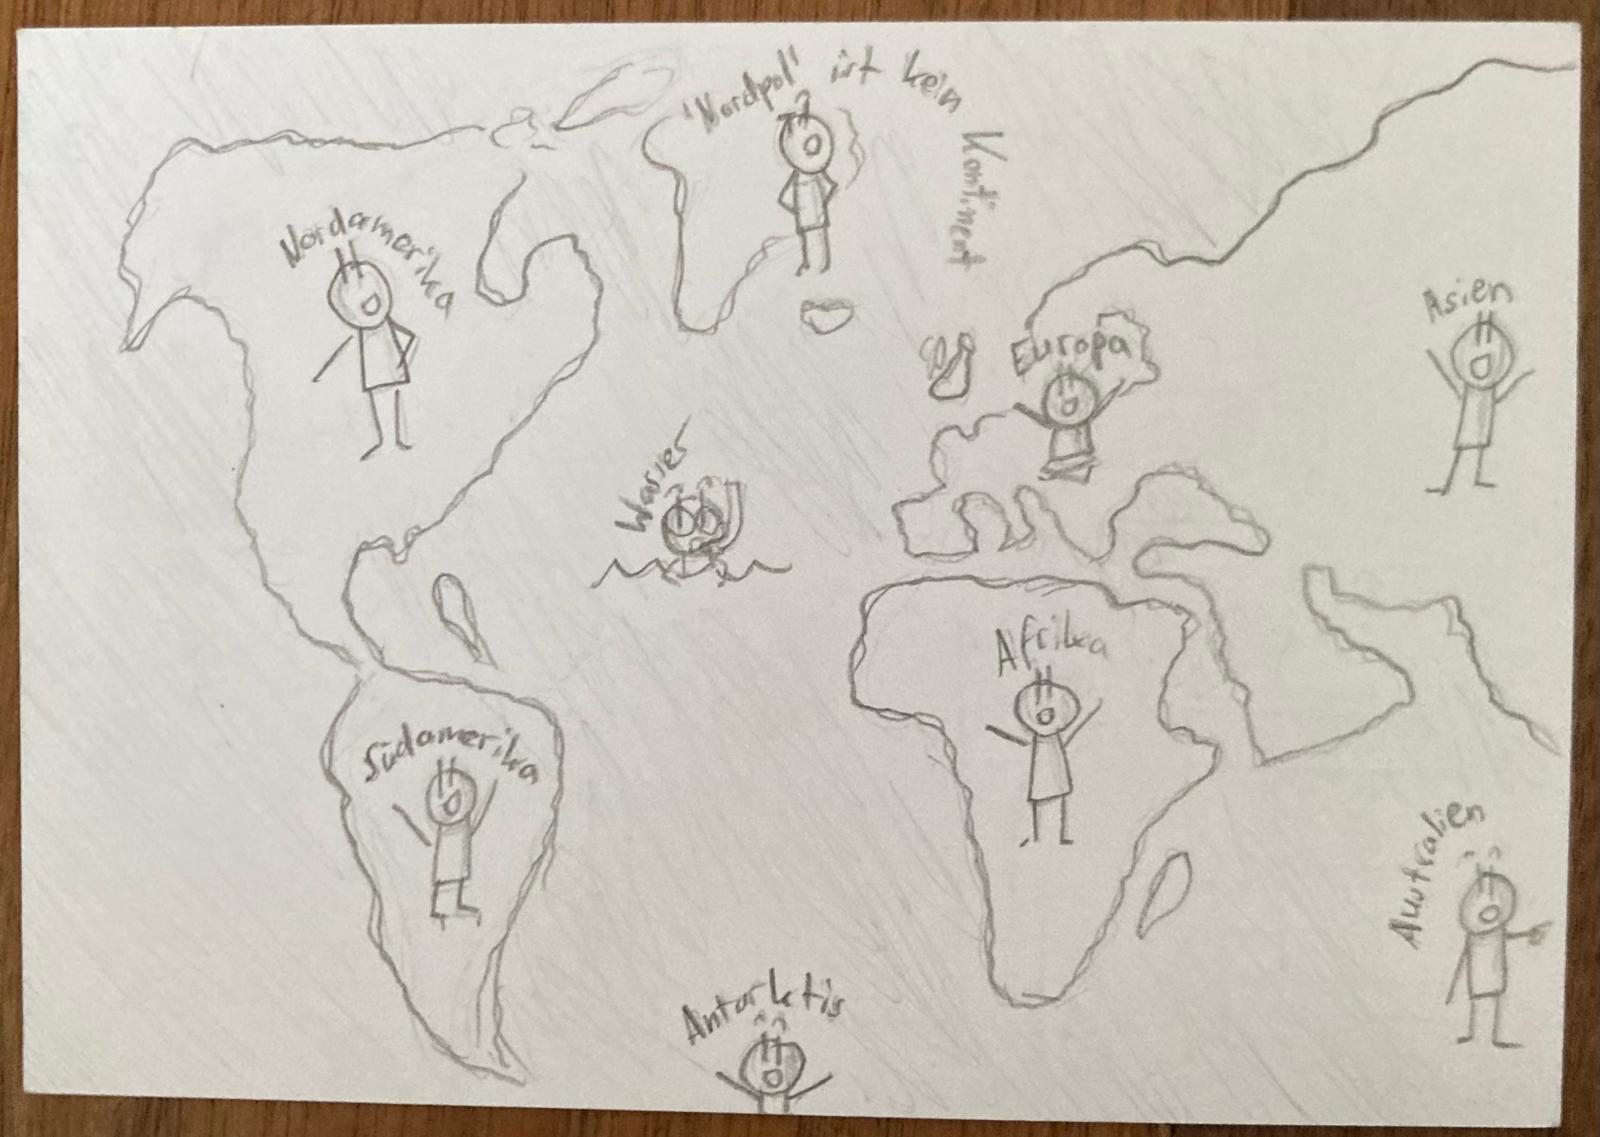 'Nordpol' ist kein Kontinent
Nordamerika
Asien
Europa
Wasser
Afrika
Südamerika
Australien
Antarktis